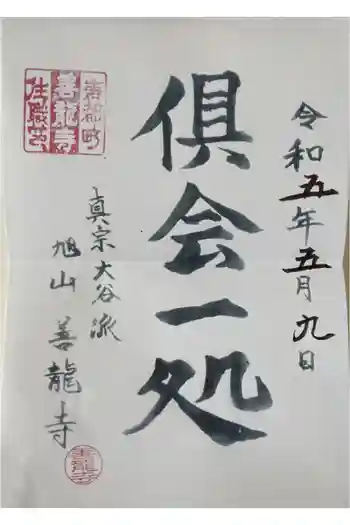 令和五年五月九日
俱会一処
真宗大谷派
旭山 善龍寺
善龍寺
住職之印
善龍寺